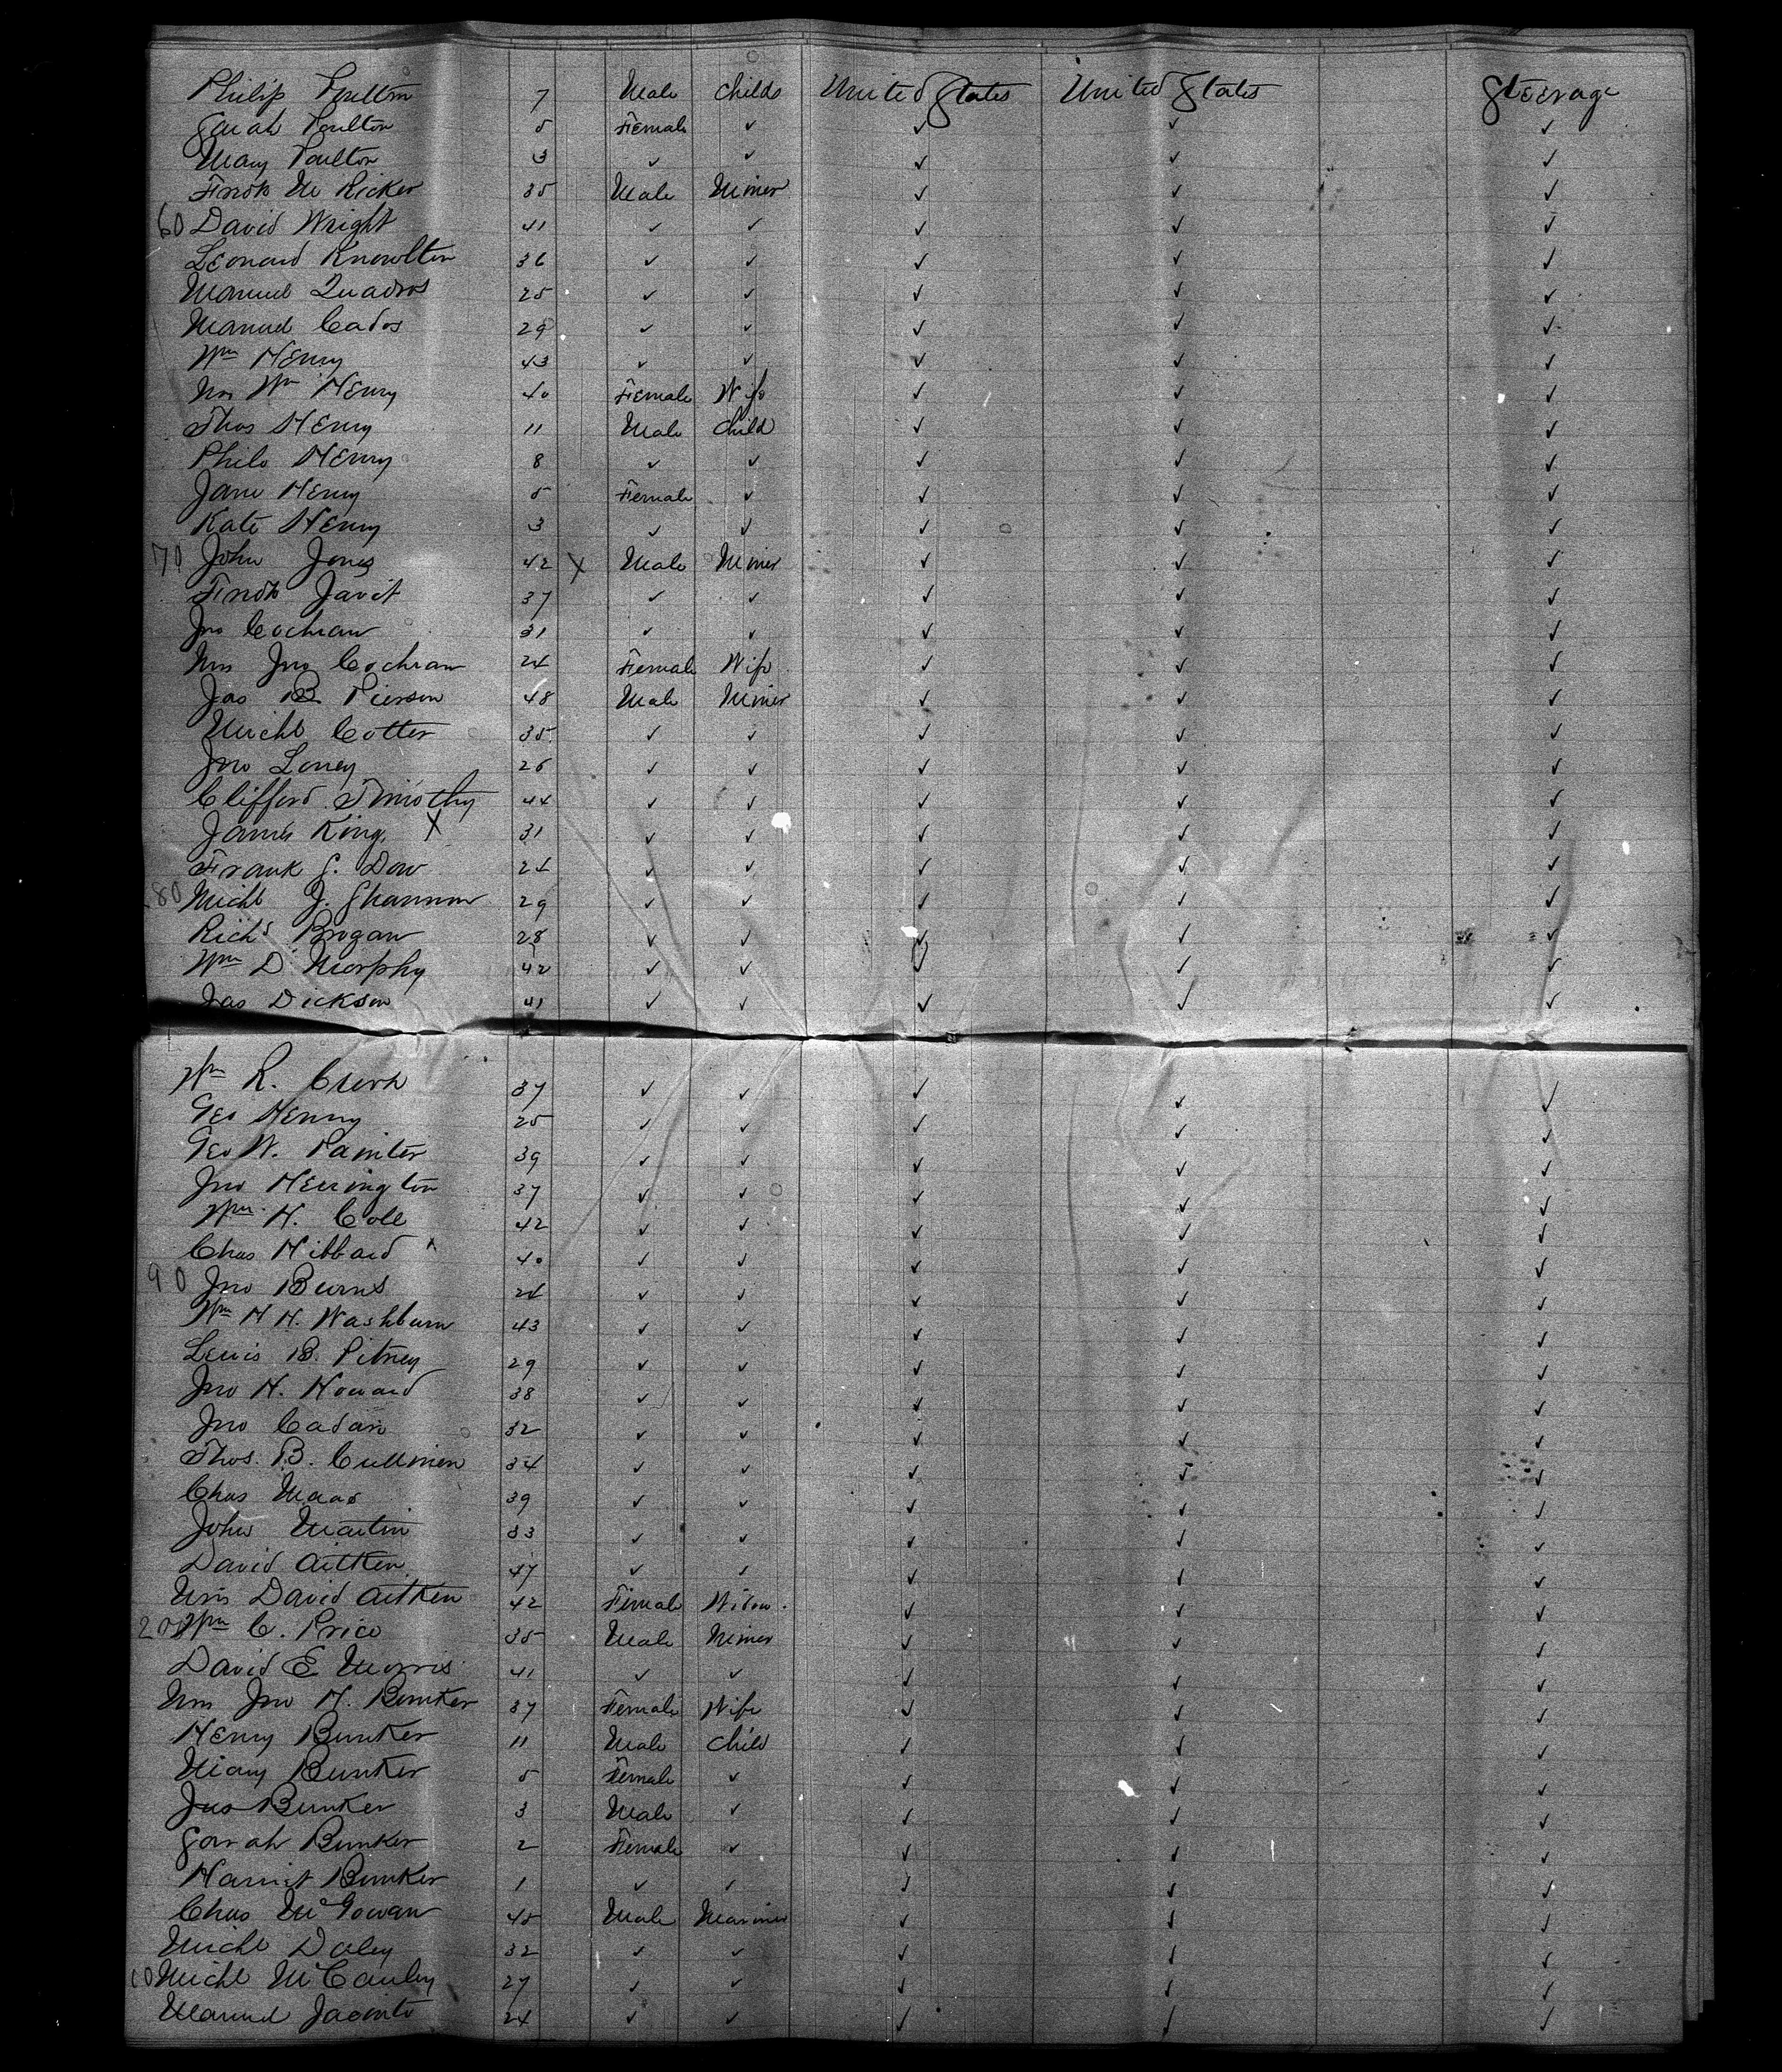 Philip Poulton 7 Male Childs United States United States Steerage
Sarah Poulton 5 Female ✓ ✓ ✓ ✓
Mary Poulton 3 ✓ ✓ ✓ ✓ ✓
Fredk M Ricker 35 Male Miner ✓ ✓ ✓
60 David Wright 41 ✓ ✓ ✓ ✓ ✓
Leonard Knowlton 36 ✓ ✓ ✓ ✓ ✓
Manuel Quadros 25 ✓ ✓ ✓ ✓ ✓
Manuel Cados 29 ✓ ✓ ✓ ✓ ✓
Wm Henry 43 ✓ ✓ ✓ ✓ ✓
Mrs Wm Henry 40 Female Wife ✓ ✓ ✓
Thos Henry 11 Male Child ✓ ✓ ✓
Philo Henry 8 ✓ ✓ ✓ ✓ ✓
Jane Henry 5 Female ✓ ✓ ✓ ✓
Kate Henry 3 ✓ ✓ ✓ ✓ ✓
70 John Jones 42 X Male Miner ✓ ✓ ✓
Fredk Javit 37 ✓ ✓ ✓ ✓ ✓
Jno Cochran 31 ✓ ✓ ✓ ✓ ✓
Mrs Jno Cochran 24 Female Wife ✓ ✓ ✓
Jas B Pierson 48 Male Miner ✓ ✓ ✓
Michl Cotter 35 ✓ ✓ ✓ ✓ ✓
Jno Loney 26 ✓ ✓ ✓ ✓ ✓
Clifford Timothy 44 ✓ ✓ ✓ ✓ ✓
James King X 31 ✓ ✓ ✓ ✓ ✓
Frank G. Dow 24 ✓ ✓ ✓ ✓ ✓
80 Michl J. Shannon 29 ✓ ✓ ✓ ✓ ✓
Richd Brogan 28 ✓ ✓ ✓ ✓ ✓
Wm D Morphy 42 ✓ ✓ ✓ ✓ ✓
Jas Dickson 41 ✓ ✓ ✓ ✓ ✓
Wm R. 37 ✓ ✓ ✓ ✓ ✓
Geo Henny 25 ✓ ✓ ✓ ✓ ✓
Geo W. Painter 39 ✓ ✓ ✓ ✓ ✓
Jno Herrington 37 ✓ ✓ ✓ ✓ ✓
Wm H. Cole 42 ✓ ✓ ✓ ✓ ✓
Chas Hibbard 40 ✓ ✓ ✓ ✓ ✓
90 Jno Burns 24 ✓ ✓ ✓ ✓ ✓
Wm H H. Washburn 43 ✓ ✓ ✓ ✓ ✓
Lewis B. Pitney 29 ✓ ✓ ✓ ✓ ✓
Jno H. Howard 38 ✓ ✓ ✓ ✓ ✓
Jno Cadan 32 ✓ ✓ ✓ ✓ ✓
Thos. B. Cullinien 34 ✓ ✓ ✓ ✓ ✓
Chas Maas 39 ✓ ✓ ✓ ✓ ✓
John Martin 33 ✓ ✓ ✓ ✓ ✓
David Aitken 47 ✓ ✓ ✓ ✓ ✓
Mrs David Aitken 42 Female Widow ✓ ✓ ✓
200 Wm C. Price 35 Male Miner ✓ ✓ ✓
David E Morris 41 ✓ ✓ ✓ ✓ ✓
Mrs Jno H. Bunker 37 Female Wife ✓ ✓ ✓
Henry Bunker 11 Male Child ✓ ✓ ✓
Mary Bunker 5 Female ✓ ✓ ✓ ✓
Jas Bunker 3 Male ✓ ✓ ✓ ✓
Sarah Bunker 2 Female ✓ ✓ ✓ ✓
Harriet Bunker 1 ✓ ✓ ✓ ✓ ✓
Chas McGowan 45 Male Mariner ✓ ✓ ✓
Michl Daley 32 ✓ ✓ ✓ ✓ ✓
10 Michl McCauley 27 ✓ ✓ ✓ ✓ ✓
Manuel Jacinto 24 ✓ ✓ ✓ ✓ ✓